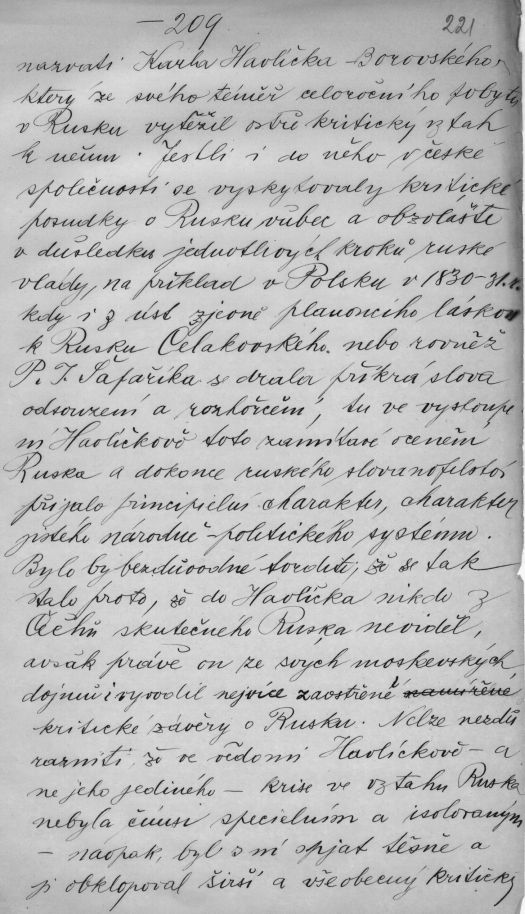 — 209.
221
nazvati Karla Havlíčka-Borovského,
který ze svého téměř celoročního pobytu
v Rusku vytěžil ostře kritický vztah
k němu. Jestli i do něho v české
společnosti se vyskytovaly kritické
posudky o Rusku vůbec a obzvláště
v důsledku jednotlivých kroků ruské
vlády, na příklad v Polsku v 1830-31.r.
kdy i z úst zjevně planoucího láskou
k Rusku Čelakovského. nebo rovněž
P. J. Šafaříka se drala příkrá slova
odsouzení a rozhořčení, tu ve vystoupe
ní Havlíčkově toto zamítavé ocenění
Ruska a dokonce ruského slovanofilství
přijalo principielní charakter, charakter
jistého národně-politického systému.
Bylo by bezdůvodné tvrditi, že se tak
stalo proto, že do Havlíčka nikdo z
Čechů skutečného Ruska neviděl,
avšak právě on ze svých moskevských
dojmů i vyvodil nejvíce zaostřené
kritické závěry o Rusku. Nelze nezdů
razniti, že ve vědomí Havlíčkově — a
ne jeho jediného — krise ve vztahu Ruska
nebyla čímsi specielním a isolovaným
— naopak, byl s ní spjat těsně a
ji obklopoval širší a všeobecný kritický